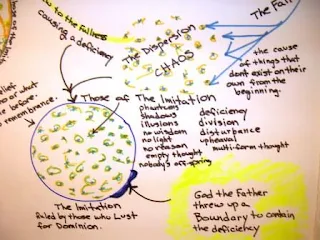 to the Fullness
causing a deficiency
The Dispersion
CHAOS
The Fall
the cause
of things that
dont exist on their
own from the
beginning.
of what
before
remembrance.
Those of The Imitation
phantoms
shadows
illusions
no wisdom
no light
no reason
empty thought
nobodys offspring
deficiency
division
disturbance
upheaval
multi-form thought
The Imitation
ruled by those who Lust
for Dominion.
God the Father
threw up a
Boundary to contain
the deficiency